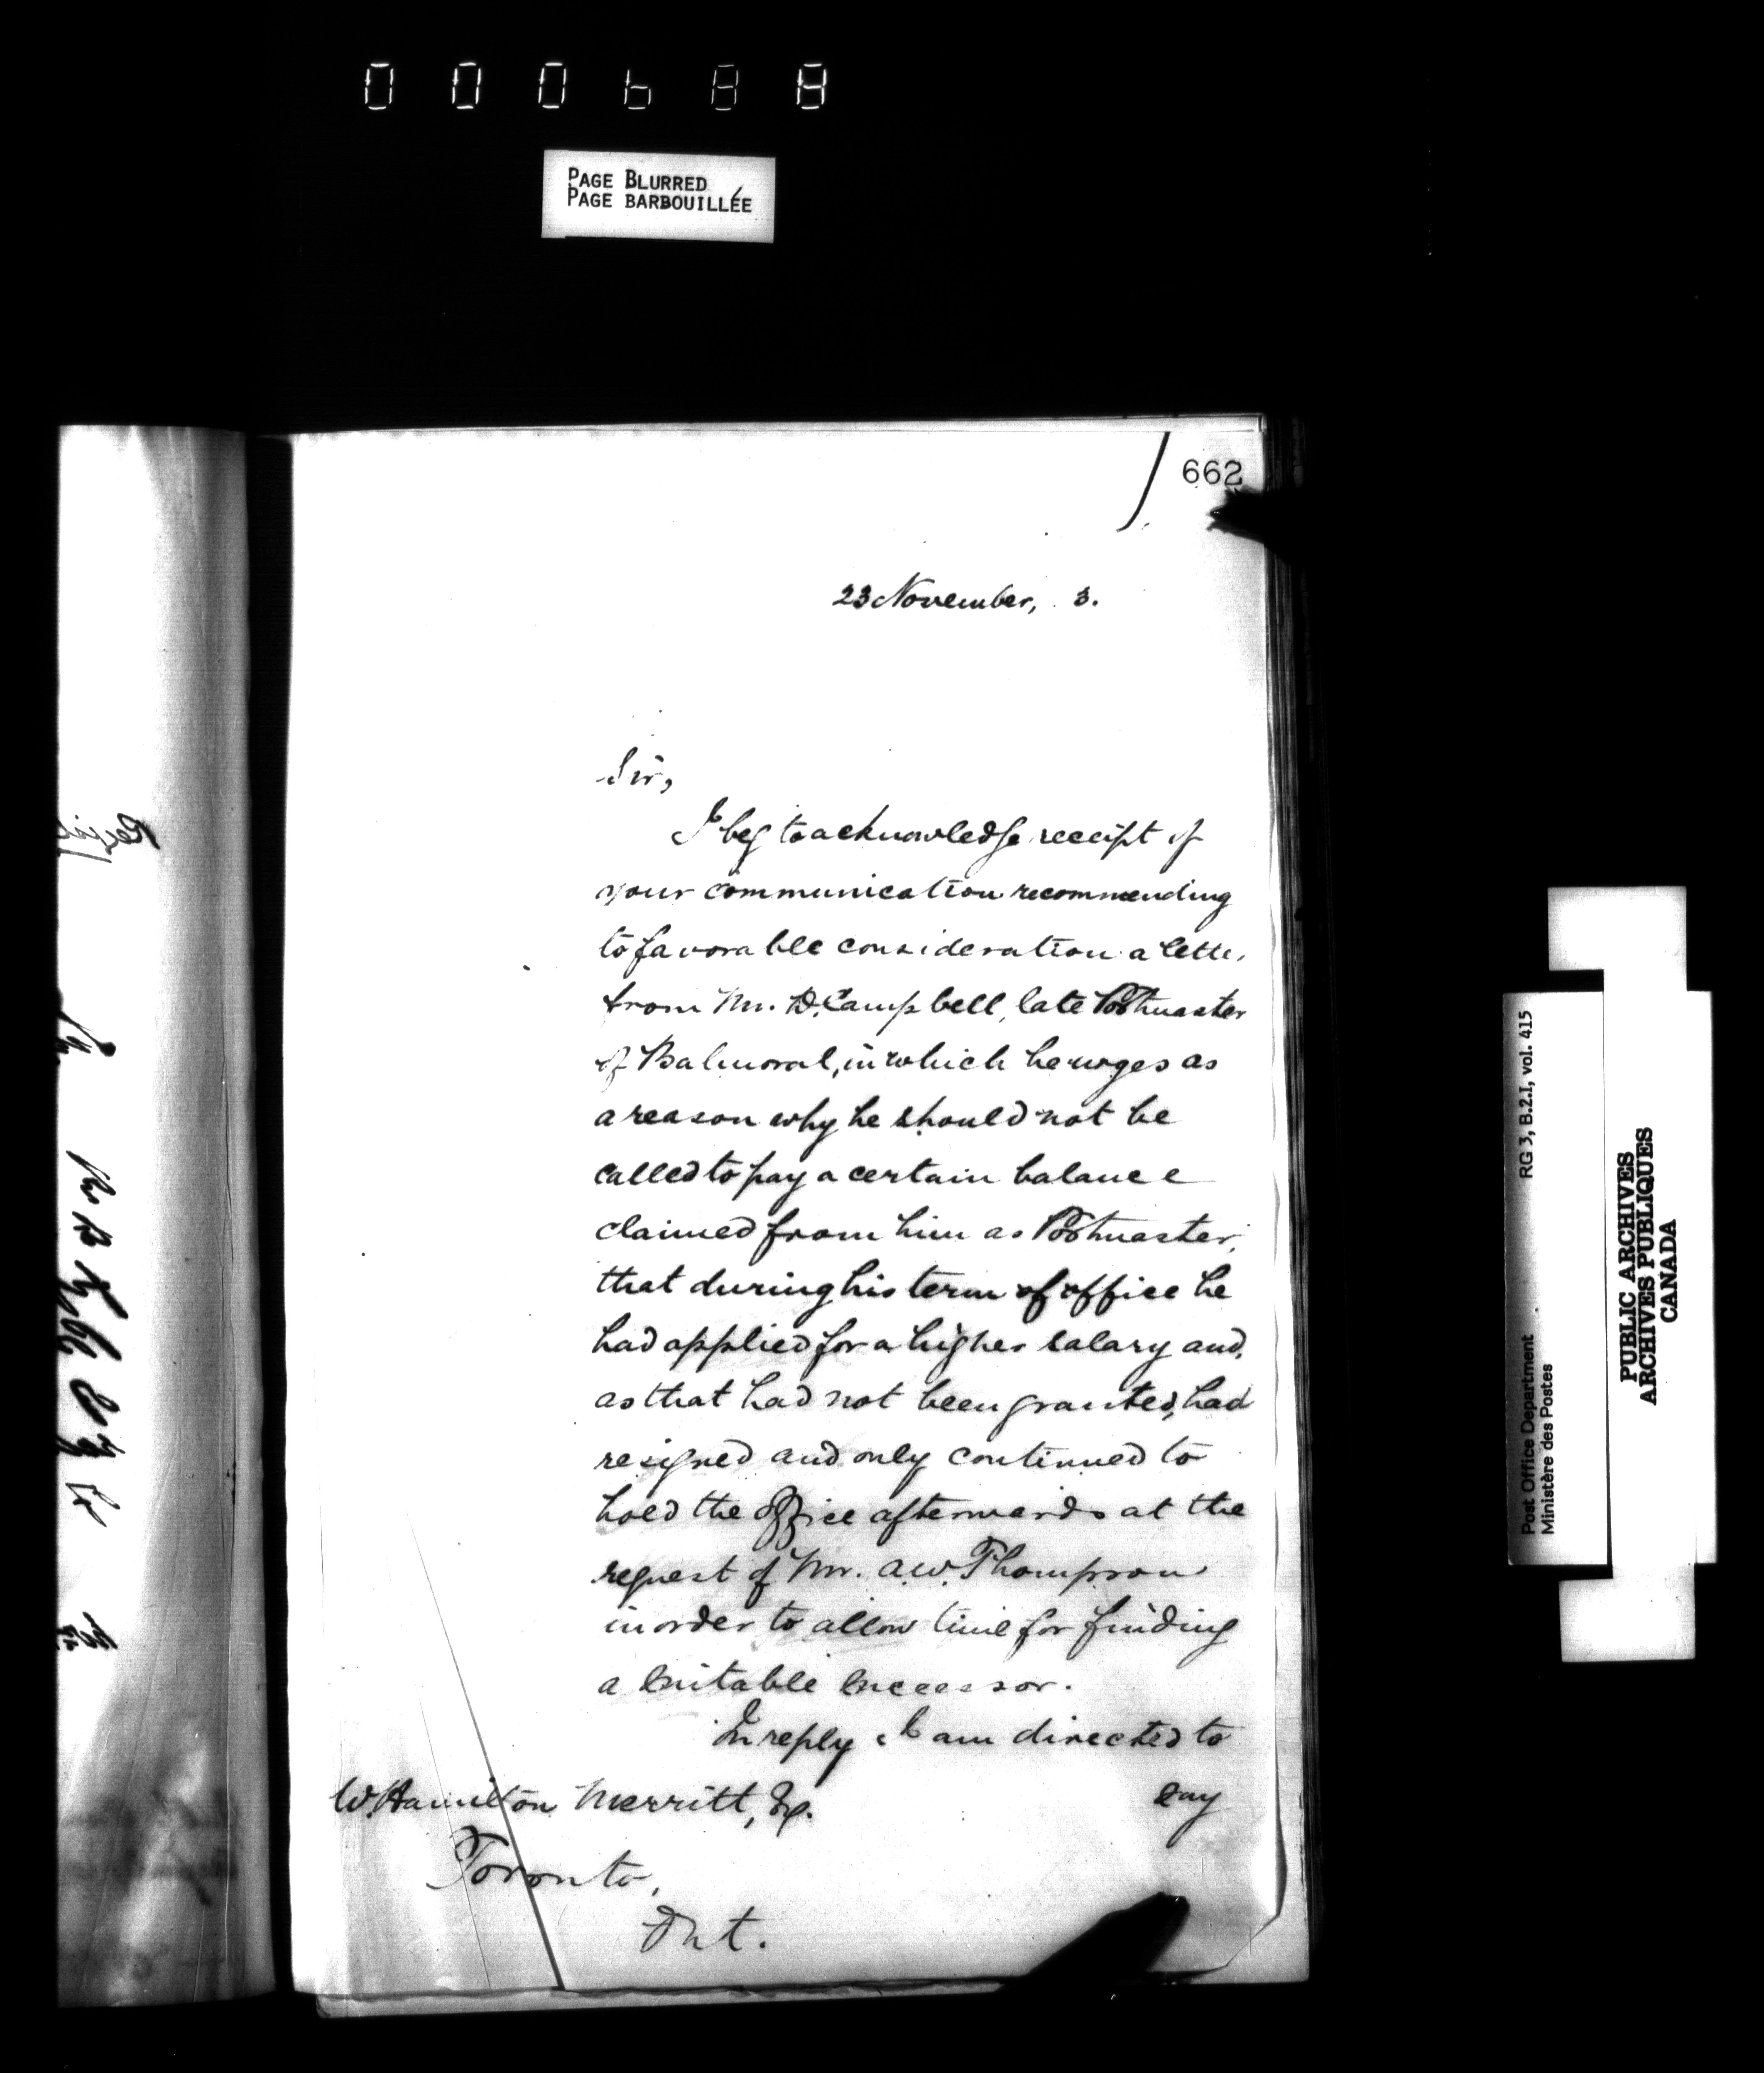 PAGE BLURRED
PAGE BARBOUILLÉE
662
23 November, 3.
Sir,
I beg to acknowledge receipt of
your communication recommending
to favorable consideration a letter
from Mr. D. Campbell, late Postmaster
of Balmoral, in which he urges as
a reason why he should not be
called to pay a certain balance
claimed from him as Postmaster,
that during his term of office he
had applied for a higher salary and,
as that had not been granted, had
resigned and only continued to
hold the office afterwards at the
request of Mr. A.W. Thompson
in order to allow time for finding
a suitable successor.
In reply I am directed to
say
W. Hamilton Merritt, Esq.
Toronto,
Ont.
Post Office Department RG 3, B.2.I, vol. 415
Ministère des Postes
PUBLIC ARCHIVES
ARCHIVES PUBLIQUES
CANADA